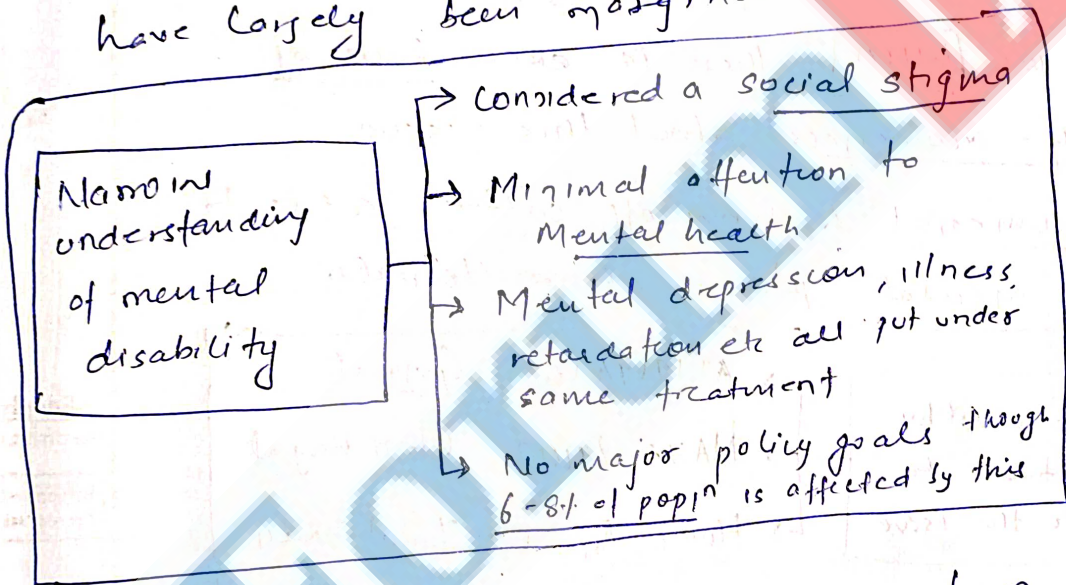 have largely been
Narrow
understanding
of mental
disability
→ Considered a social stigma
→ Minimal attention to
Mental health
→ Mental depression, illness,
retardation etc all put under
same treatment
→ No major policy goals though
6-8% of popln is affected by this
Forum